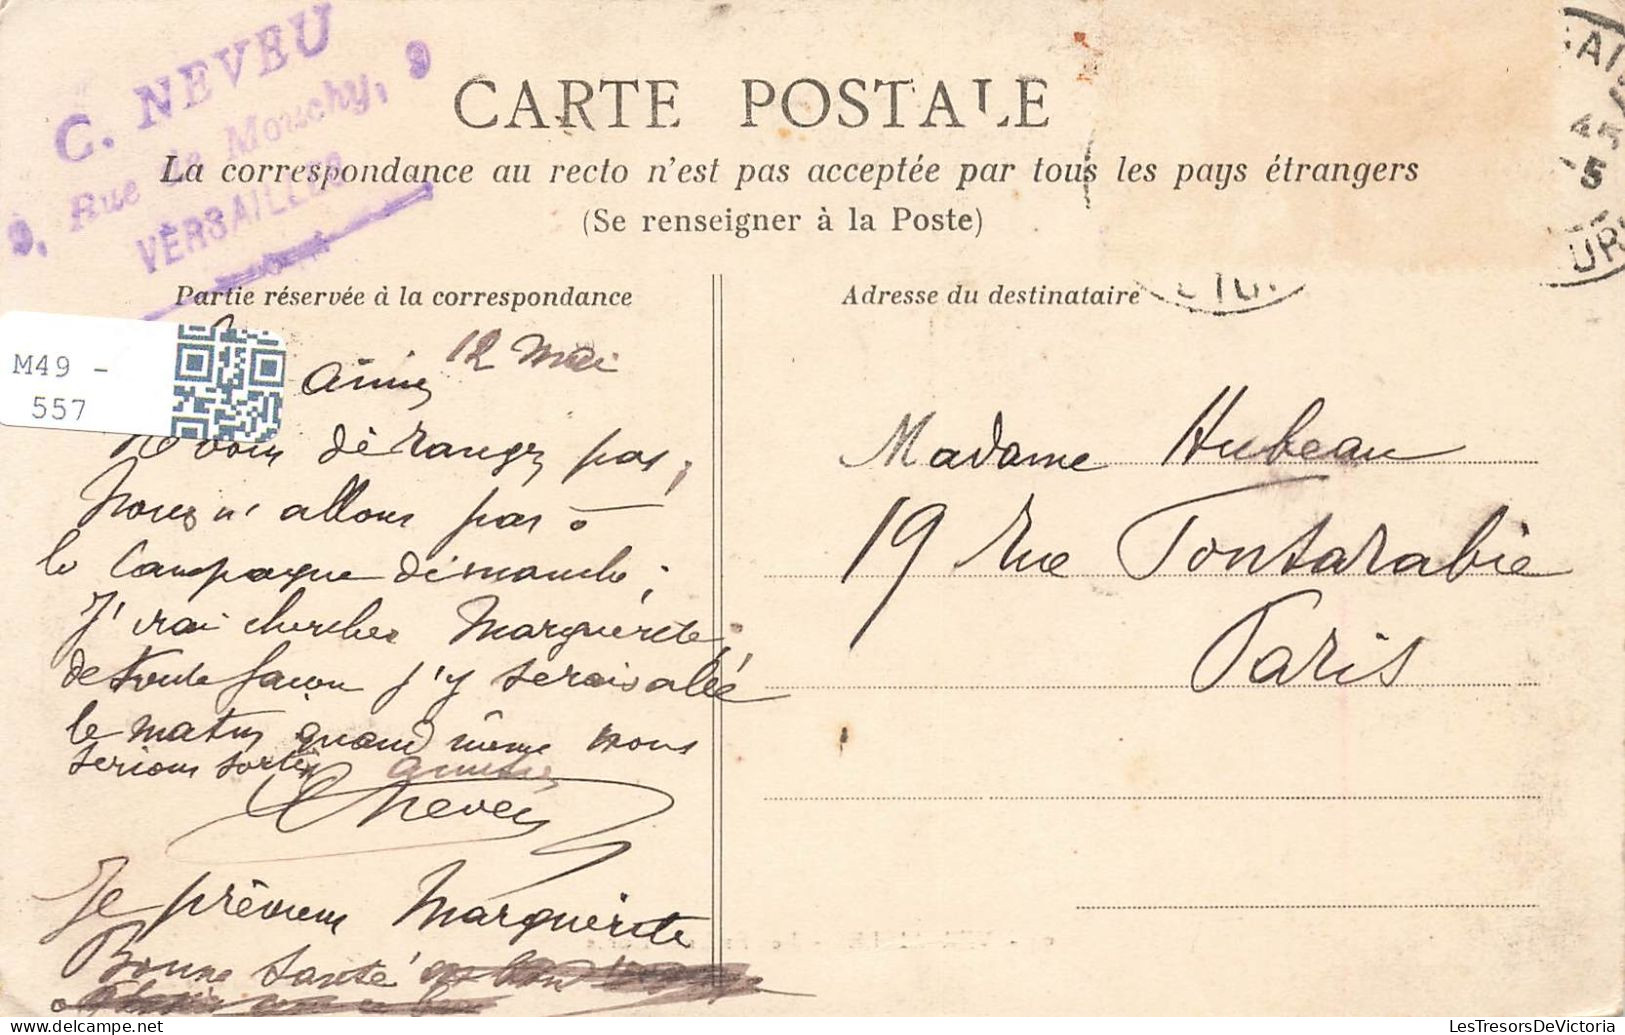 C. NEVEU
9, Rue de Mouchy, 9
VERSAILLES
CARTE POSTALE
La correspondance au recto n'est pas acceptée par tous les pays étrangers
(Se renseigner à la Poste)
Partie réservée à la correspondance
Adresse du destinataire
M49 -
557
12 mai
Amis
Ne vous dérangez pas,
Nous n'allons pas à
la Campagne dimanche;
J'irai chercher Marguerite,
de toute façon j'y serais allée
le matin quand même nous
serions sortis
CNeveu
Je préviens Marguerite
Bonne Santé
Madame Hubeau
19 rue Fontarabie
Paris
LesTresorsDeVictoria
delcampe.net